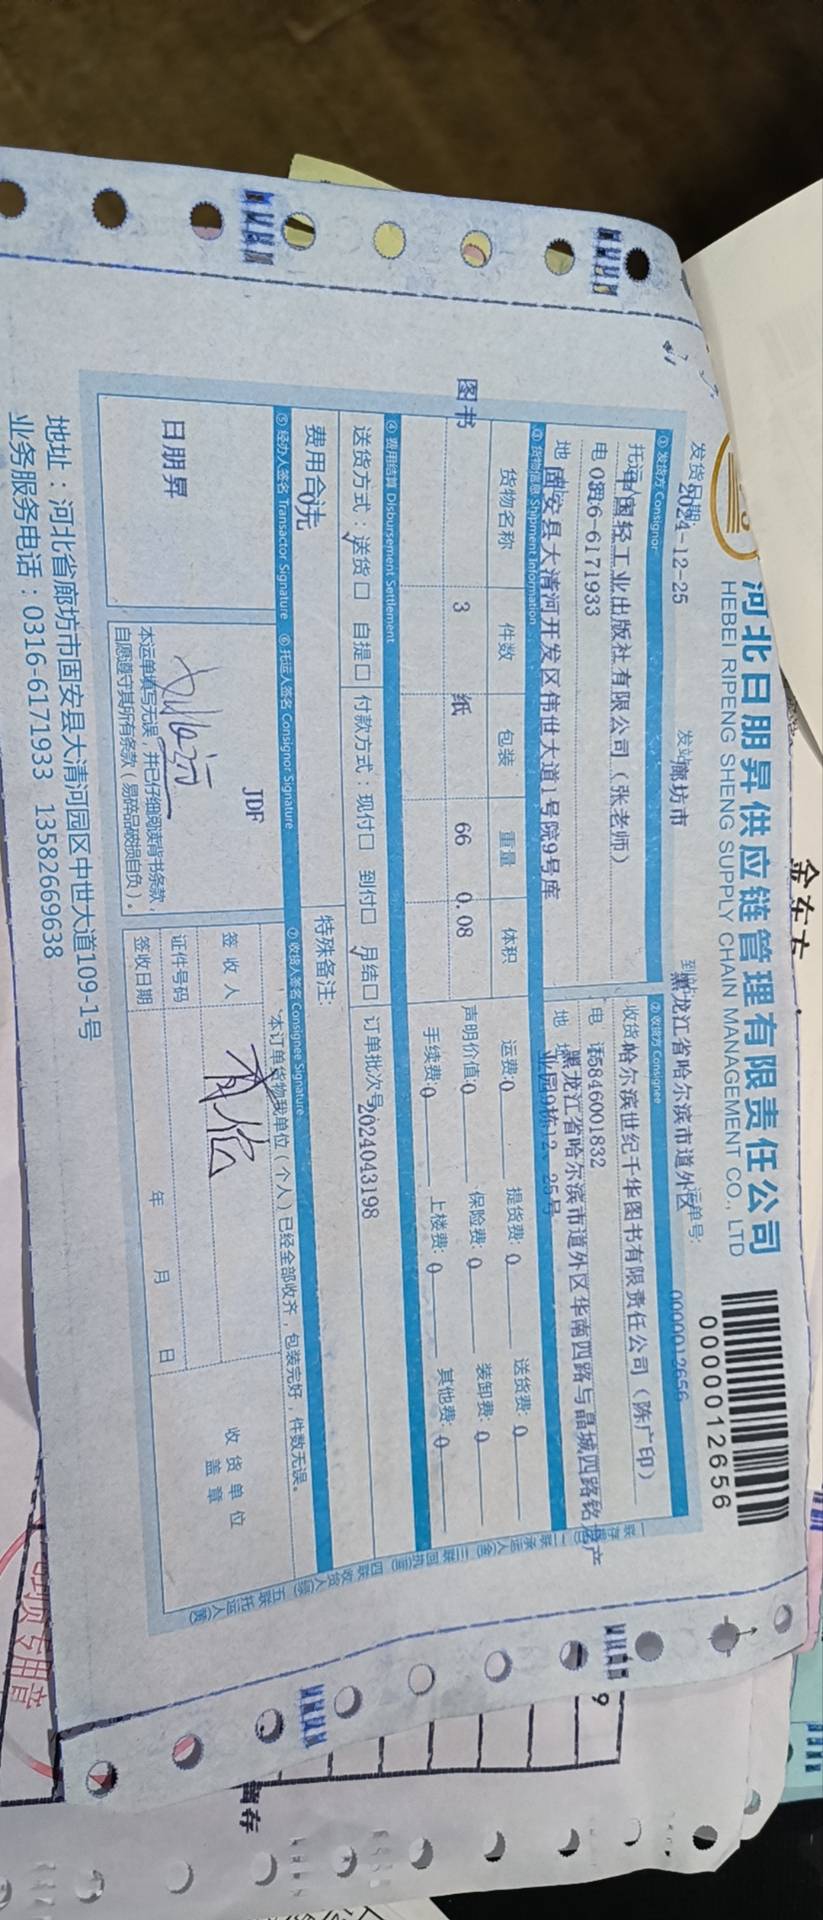 河北日朋昇供应链管理有限责任公司
HEBEI RIPENG SHENG SUPPLY CHAIN MANAGEMENT CO., LTD
0000012656
发货日期: 2024-12-25 发站: 廊坊市 到站: 黑龙江省哈尔滨市道外区 运单号: 0000012656
① 发货方 Consignor
托运 中国轻工业出版社有限公司（张老师）
电 0316-6171933
地 固安县大清河开发区伟世大道1号院9号库
② 收货方 Consignee
收货 哈尔滨世纪千华图书有限责任公司（陈广印）
电 话 15846001832
地 址 黑龙江省哈尔滨市道外区华南四路与晶城四路铭 产
业园9栋12、25号
③ 货物信息 Shipment Information
货物名称 件数 包装 重量 体积
图书 3 纸 66 0.08
运费:0 提货费: 0 送货费: 0
声明价值:0 保险费: 0 装卸费: 0
手续费:0 上楼费: 0 其他费: 0
④ 费用结算 Disbursement Settlement
送货方式：送货☐ 自提☐ 付款方式：现付☐ 到付☐ 月结☐ 订单批次号: 2024043198
费用合计: 0元 特殊备注:
⑤ 经办人签名 Transactor Signature ⑥ 托运人签名 Consignor Signature ⑦ 收货人签名 Consignee Signature
日朋昇
JDF
本运单填写无误，并已仔细阅读背书条款，
自愿遵守其所有条款（易碎品破损自负）。
本订单货物我单位（个人）已经全部收齐，包装完好，件数无误。
签 收 人
证件号码
签收日期 年 月 日
收 货 单 位
盖 章
地址：河北省廊坊市固安县大清河园区中世大道109-1号
业务服务电话：0316-6171933 13582669638
专用章
留存
9